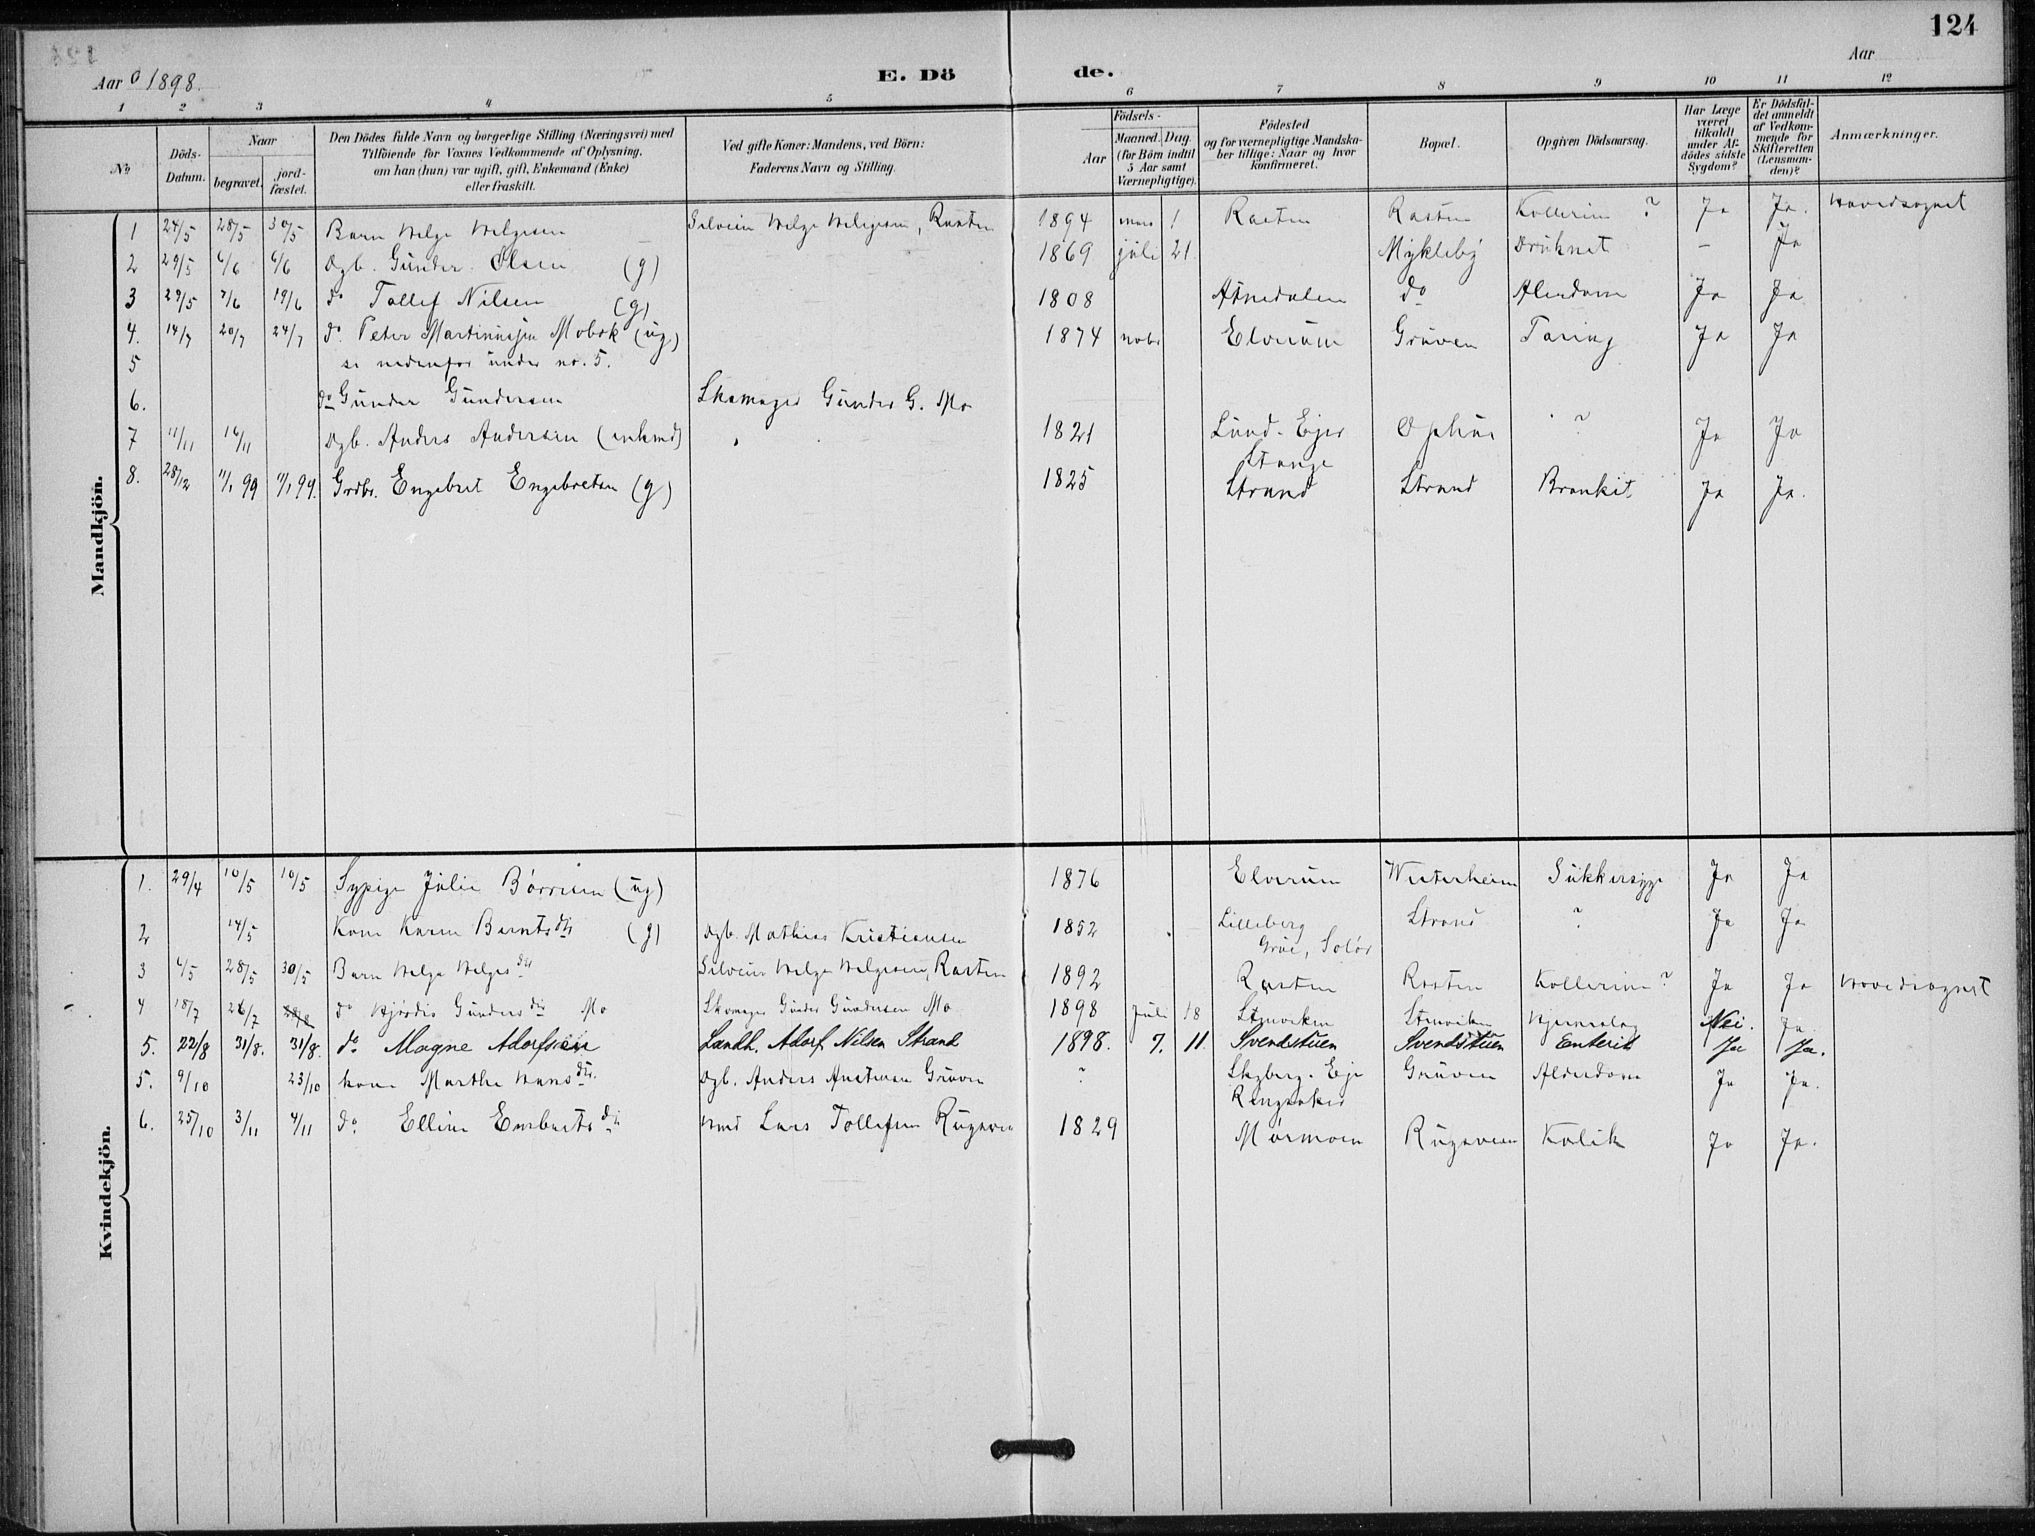 124
Aar 1898.
E. Dö
de.
Aar
1 2 3 4 5 6 7 8 9 10 11 12
No
Döds-Datum.
Naar
begravet.
jord-fæstet.
Den Dödes fulde Navn og borgerlige Stilling (Næringsvei) med
Tilföiende for Voxnes Vedkommende af Oplysning,
om han (hun) var ugift, gift, Enkemand (Enke)
eller fraskilt.
Ved gifte Koner: Mandens, ved Börn:
Faderens Navn og Stilling.
Födsels-
Aar
Maaned.
Dag.
(for Börn indtil
5 Aar samt
Værnepligtige).
Födested
og for værnepligtige Mandska-
ber tillige: Naar og hvor
konfirmeret.
Bopæl.
Opgiven Dödsaarsag.
Har Læge
været
tilkaldt
under Af-
dödes sidste
Sygdom?
Er Dödsfal-
det anmeldt
af Vedkom-
mende for
Skifteretten
(Lensman-
den)?
Anmærkninger.
Mandkjön.
1 24/5 28/5 30/5 Barn Helge Helgesen Helge Helgesen, Rasten 1894 1 Rasten Rasten Kollerine ? Ja Ja. Hovedsognet
2 29/5 6/6 6/6 Dgb. Gunder Olsen (g) 1869 juli 21 Mykleby Druknet - Ja
3 29/5 7/6 19/6 do Tollef Nilsen (g) 1808 Atnedalen do Alerdom Ja Ja
4. 14/7 20/7 24/7 do. Peter Martinussen Mobæk (ug) 1874 novbr Elverum Gruven Tæring Ja Ja
5 se nedenfor under no. 5.
6. do Gunder Gundersen Skomager Gunder G. Mo
7 11/11 16/11 Dgb. Anders Andersen (enkmd) 1821 Lund-Ejer Ophus ? Ja Ja
Stange
8. 28/12 11/1 99 11/1 99. Grdbr. Engebret Engebretsen (g) 1825 Strand Strand Bronkit Ja Ja.
Kvindekjön.
1. 29/4 10/5 10/5 Sypige Julie Börresen (ug) 1876 Elverum Westerheim Sukkersyge Ja Ja
2 14/5 Kone Karen Berntsdtr (g) Dgb. Mathias Kristiansen 1852 Lilleberg Strand ? Ja Ja
Grue, Solör
3 6/5 28/5 30/5 Barn Helga Helgesdtr Helge Helgesen, Rasten 1892 Rasten Rasten Kollerine ? Ja Ja Hovedsognet
4 18/7 26/7 28/8 do Hjördis Gundersdtr Mo Skomager Gunder Gundersen Mo 1898 Juli 18 Stenviken Stenviken Nei. Ja
5. 22/8 31/8. 31/8. do Magne Adorfsen Landh. Adorf Nilsen Strand 1898. 7. 11. Svendstuen Svendstuen Enterit Ja Ja.
5. 9/10 23/10 kone Marthe Hansdtr. Dgb. Anders Andersen Gruven ? Skyberg-Eje Gruven Alderdom Ja Ja.
Ringsaker
6. 25/10 3/11 4/11 do Elline Embretsdtr Lars Tollefsen Rugsveen 1829 Mörmoen Rugsveen Kolik Ja Ja.